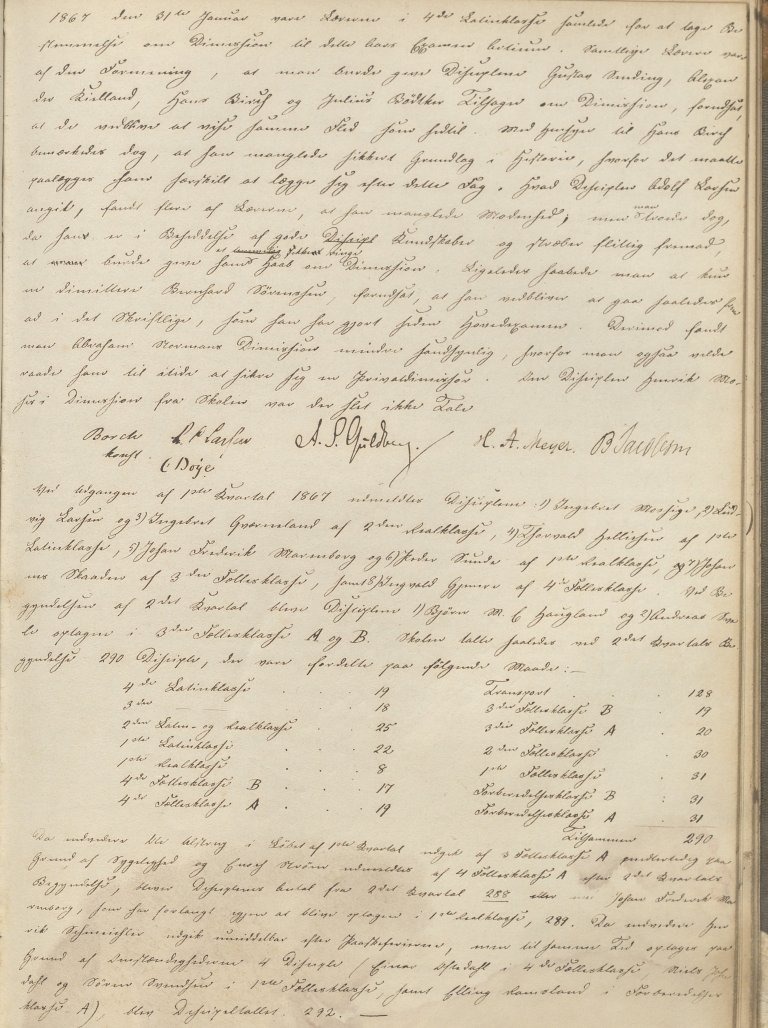 1867 den 31te Januar vare Lærerne i 4de Latinklasse samlede for at tage Be
stemmelse om Dimission til dette Aars Examen artium. Samtlige Lærere vare
af den Formening, at man burde give Disciplene Gustav Sending, Alexan
der Kielland, Hans Birch og Julius Bødtker Tilsagn om Dimission, forudsat,
at de vedblive at vise samme Flid som hidtil. Med Hensyn til Hans Birch
bemærkedes dog, at han manglede sikkert Grundlag i Historie, hvorfor det maatte
paalægges ham særskilt at lægge sig efter dette Fag. Hvad Disciplen Adolf Larsen
angik, fandt flere af Lærerne, at han manglede Modenhed; men man troede dog,
da han er i Besiddelse af gode Kundskaber og stræber flittig fremad,
at burde give ham Haab om Dimission. Ligeledes haabede man at kun
ne dimittere Bernhard Sørenssen, forudsat, at han vedbliver at gaa saaledes frem
ad i det Skriftlige, som han har gjort siden Hovedexamen. Derimod fandt
man Abraham Normans Dimission mindre sandsynlig, hvorfor man ogsaa vilde
raade ham til itide at sikre sig en Privatdimissor. Om Disciplen Henrik Mo
s i Dimission fra Skolen var der slet ikke Tale
Borch Larsen A. S. Guldberg. H. A. Meyer. B Jacobsen
konst. C Døye
Ved Udgangen af 1ste Kvartal 1867 udmeldtes Disciplene: 1) Ingebret Mossige, 2) Lud
vig Larsen og 3) Ingebret Gvarneland af 2den Realklasse, 4) Thorvald Hellissen af 1ste
Latinklasse, 5) Johan Frederik Marenborg og 6) Peder Sunde af 1ste Realklasse, 7) Johan
nes Skaaden af 3die Fællesklasse, samt 8) Ingvald Gjemre af 4de Fællesklasse. Ved Be
gyndelsen af 2det Kvartal bleve Disciplene 1) Bjørn M. C Haugland og 2) Andreas Sve
optagne i 3die Fællesklasse A og B. Skolen talte saaledes ved 2det Kvartals Be
gyndelse 290 Disciple, der vare fordelte paa følgende Maade:—
4de Latinklasse . . . 19 Transport . . . 128
3die — . . . 18 3die Fællesklasse B . 19
2den Latin- og Realklasse . . 25 3die Fællesklasse A . 20
1ste Latinklasse . . . 22 2den Fællesklasse . 30
1ste Realklasse . . . 8 1ste Fællesklasse . 31
4de Fællesklasse B . . . 17 Forberedelsesklasse B : 31
4de Fællesklasse A . . . 19 Forberedelsesklasse A : 31
Tilsammen 290
Da endvidere Ole i Løbet af 1ste Kvartal udgik af 3 Fællesklasse A paa
Grund af Sygelighed og Enoch Strøm udmeldtes af 4 Fællesklasse A efter 2det Kvartals
Begyndelse, bliver Disciplenes Antal fra 2det Kvartal 288 Johan Frederik Ma
renborg, som har forlangt igjen at blive optagen i 1ste Realklasse, 289. Da endvidere Hen
rik Schmeichler udgik umiddelbar efter Paaskeferierne, men til samme Tid optages paa
Grund af Omstændighederne 4 Disciple (Einar Astdahl i 4de Fællesklasse, Niels
dahl og Søren Svendsen i 1ste Fællesklasse samt Elling Ramsland i Forberedelses
klasse A), blev Discipeltallet 292. —